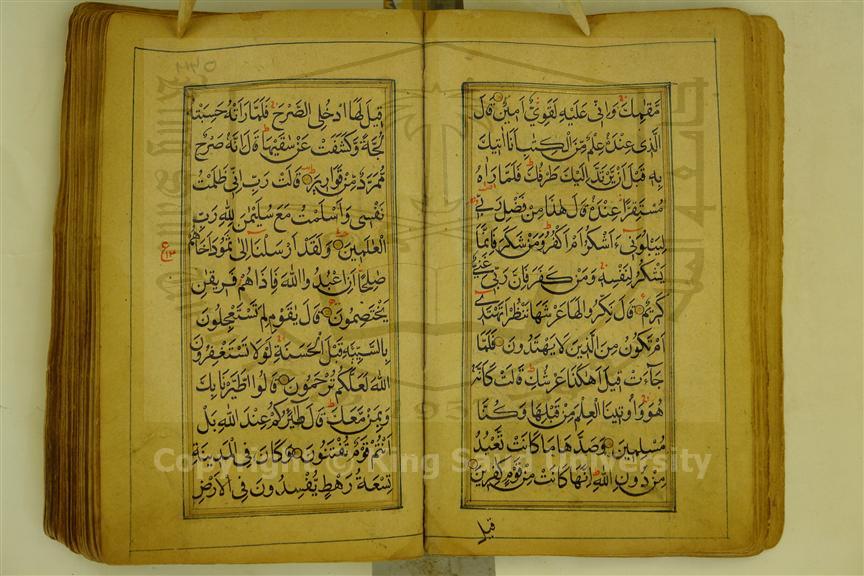 مَّقَامِكَ وَاِنِّى عَلَيْهِ لَقَوِىٌّ اَمِيْنٌ قَالَ
الَّذِى عِنْدَهٗ عِلْمٌ مِّنَ الْكِتٰبِ اَنَا اٰتِيْكَ
بِهٖ قَبْلَ اَنْ يَّرْتَدَّ اِلَيْكَ طَرْفُكَ فَلَمَّا رَاٰهُ
مُسْتَقِرًّا عِنْدَهٗ قَالَ هٰذَا مِنْ فَضْلِ رَبِّىْ
لِيَبْلُوَنِىْ ءَاَشْكُرُ اَمْ اَكْفُرُ وَمَنْ شَكَرَ فَاِنَّمَا
يَشْكُرُ لِنَفْسِهٖ وَمَنْ كَفَرَ فَاِنَّ رَبِّىْ غَنِىٌّ
كَرِيْمٌ قَالَ نَكِّرُوْا لَهَا عَرْشَهَا نَنْظُرْ اَتَهْتَدِىْ
اَمْ تَكُوْنُ مِنَ الَّذِيْنَ لَا يَهْتَدُوْنَ فَلَمَّا
جَآءَتْ قِيْلَ اَهٰكَذَا عَرْشُكِ قَالَتْ كَاَنَّهٗ
هُوَ وَاُوْتِيْنَا الْعِلْمَ مِنْ قَبْلِهَا وَكُنَّا
مُسْلِمِيْنَ وَصَدَّهَا مَا كَانَتْ تَّعْبُدُ
مِنْ دُوْنِ اللّٰهِ اِنَّهَا كَانَتْ مِنْ قَوْمٍ كٰفِرِيْنَ
قيل
قِيْلَ لَهَا ادْخُلِى الصَّرْحَ فَلَمَّا رَاَتْهُ حَسِبَتْهُ
لُجَّةً وَّكَشَفَتْ عَنْ سَاقَيْهَا قَالَ اِنَّهٗ صَرْحٌ
مُّمَرَّدٌ مِّنْ قَوَارِيْرَ قَالَتْ رَبِّ اِنِّىْ ظَلَمْتُ
نَفْسِىْ وَاَسْلَمْتُ مَعَ سُلَيْمٰنَ لِلّٰهِ رَبِّ
الْعٰلَمِيْنَ وَلَقَدْ اَرْسَلْنَا اِلٰى ثَمُوْدَ اَخَاهُمْ
صٰلِحًا اَنِ اعْبُدُوا اللّٰهَ فَاِذَا هُمْ فَرِيْقٰنِ
يَخْتَصِمُوْنَ قَالَ يٰقَوْمِ لِمَ تَسْتَعْجِلُوْنَ
بِالسَّيِّئَةِ قَبْلَ الْحَسَنَةِ لَوْلَا تَسْتَغْفِرُوْنَ
اللّٰهَ لَعَلَّكُمْ تُرْحَمُوْنَ قَالُوا اطَّيَّرْنَا بِكَ
وَبِمَنْ مَّعَكَ قَالَ طٰٓئِرُكُمْ عِنْدَ اللّٰهِ بَلْ
اَنْتُمْ قَوْمٌ تُفْتَنُوْنَ وَكَانَ فِى الْمَدِيْنَةِ
تِسْعَةُ رَهْطٍ يُّفْسِدُوْنَ فِى الْاَرْضِ
Copyright © King Saud University